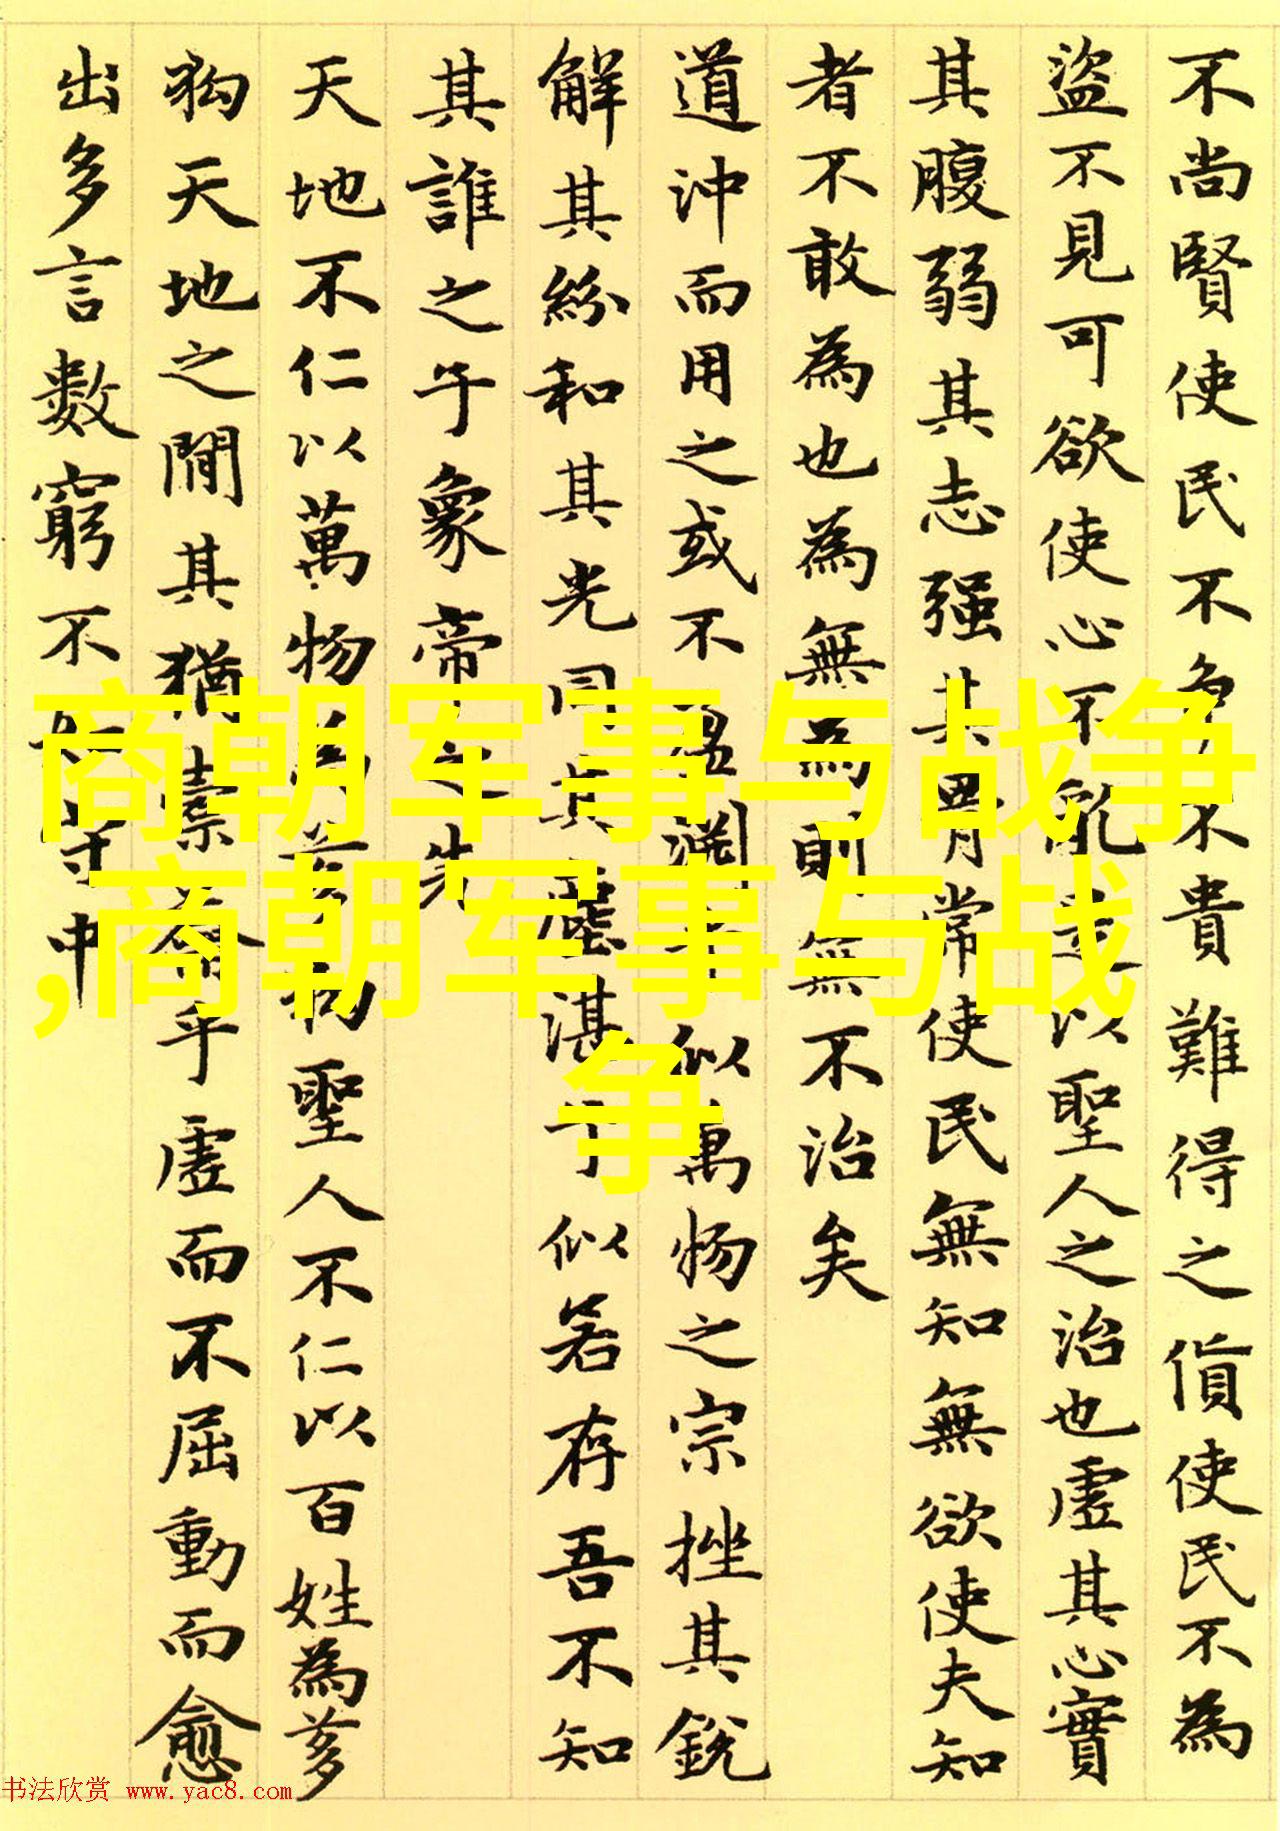 不尚賢使民不爭不貴難得之貨使民不為
盜不見可欲使心不亂是以聖人之治也虛其心實
其腹弱其志强其骨常使民無知無欲使夫知
者不敢為也為無為則無不治矣
道沖而用之或不盈淵乎似萬物之宗挫其銳
解其紛和其光同其塵湛乎似若存吾不知
其誰之子象帝之先
天地不仁以萬物為芻狗聖人不仁以百姓為芻
狗天地之閒其猶橐乎虛而不屈動而愈
出多言數窮不如守中
商朝军事与战争
,商朝军事与战
争
书法欣赏 www.yac8.com